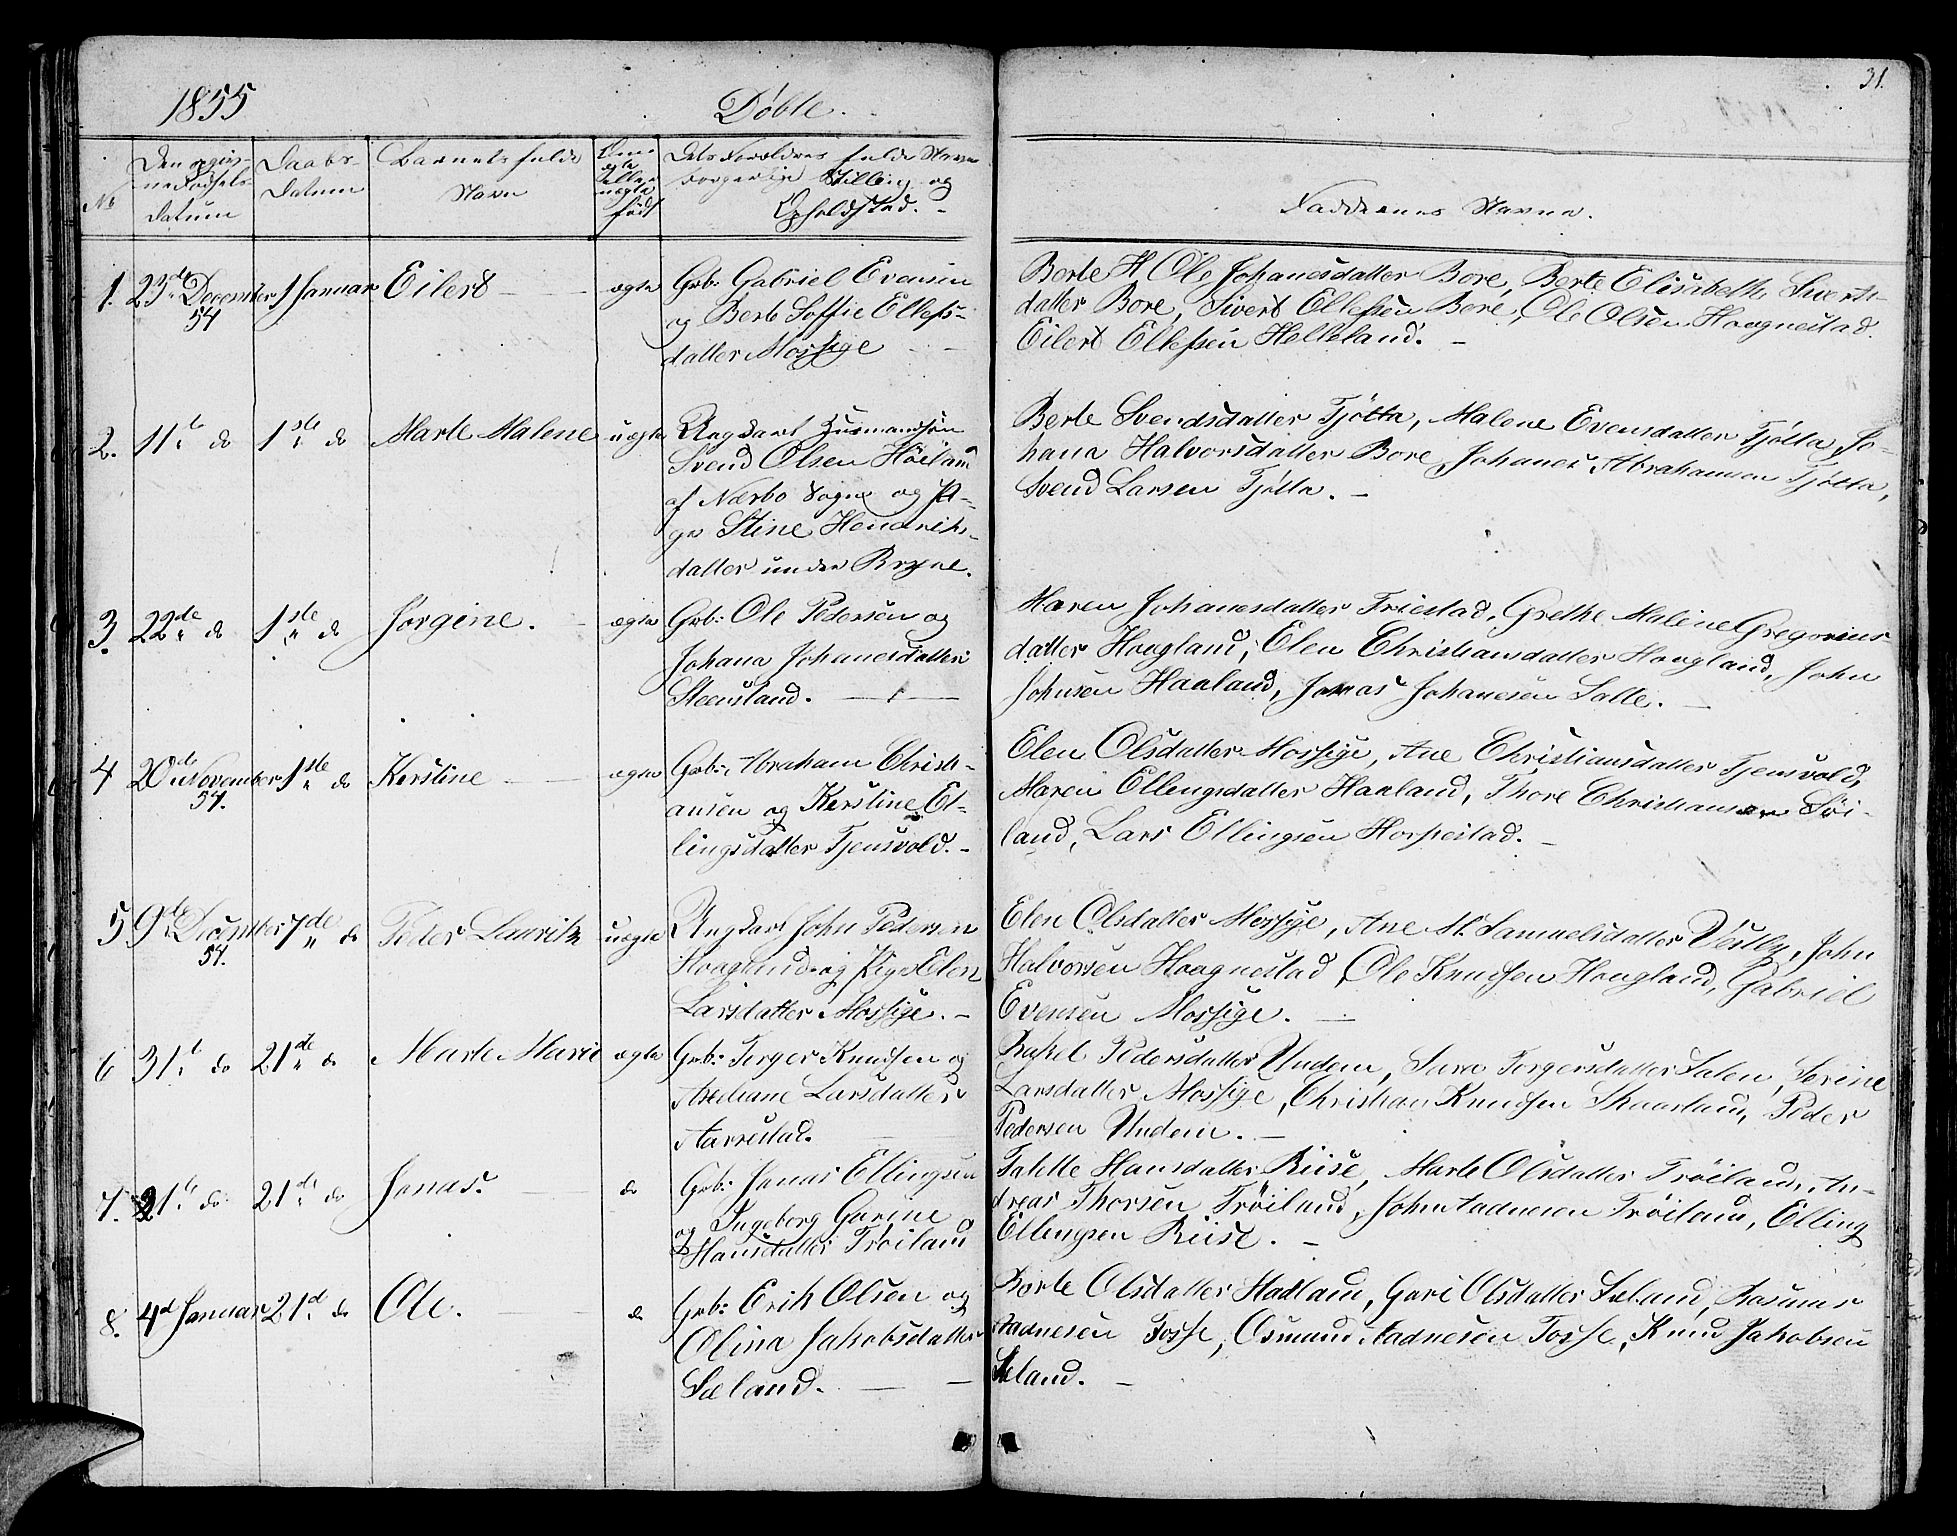 31.
1855
Döbte.
No
Den opgivne Fødsels Datum
Daabs-Datum
Barnets fulde Navn
Om ægte eller uægte født
Dets Forældres fulde Navn Borgerlige Stilling og Opholdsted.-
Faddernes Navne.
1. 23de December 54
1 Januar
Eilert
ægte
Gbr: Gabriel Evensen
og Berte Soffie Ellefs-
datter Mossige
Berte H Ole Johanesdatter Bore, Berte Elisabeth Siverts-
datter Bore, Sivert Ellefsen Bore, Ole Olsen Haagnestad
Eilert Ellefsen Helleland. -
2. 11te do
1ste do
Marte Malene
uægte
Ungkarl Huusmandsøn
Svend Olsen Höiland
af Nærbo Sogn og Pi-
ge Stine Hendriks-
datter under Bryne.
Berte Svendsdatter Tjötta, Malene Evensdatter Tjötta, Jo-
hana Halvorsdatter Bore, Johanes Abrahamsen Tjötta,
Svend Larsen Tjötta. -
3. 22de do
1ste do
Jorgine.
ægte
Gbr: Ole Pedersen og
Johana Johanesdatter
Steensland.
Maren Johanesdatter Friestad, Grethe Maline Gregorius
datter Hoagland, Elen Christiansdatter Hoagland, John
Johnsen Haaland, Jonas Johanesen Salte. -
4 20de November 54.
1ste do
Kerstine
ægte
Gbr: Abraham Christi-
ansen og Kerstine El-
lingsdatter Tjensvold. -
Elen Olsdatter Mossige, Ane Christiansdatter Tjensvold,
Maren Ellengsdatter Haaland, Thore Christiansen Söi-
land, Lars Ellingsen Horpestad. -
5 9de December 54.
7de do
Peder Lauritz
uægte
Ungkarl John Pedersen
Hoagland og Pige Elen
Larsdatter Mossige. -
Elen Olsdatter Mossige, Ane M. Samuelsdatter Vestly, John
Halvorsen Haagnestad, Ole Knudsen Hougland, Gabriel
Evensen Mossige. -
6 31te do
21de do
Marte Marie
ægte
Gbr: Torger Knudsen og
Arediane Larsdatter
Aarrestad.
Rakel Pedersdatter Undem, Sara Torgersdatter Salen, Serine
Larsdatter Mossige, Christian Knudsen Skaarland, Peder
Pedersen Undem. -
7. 21te do
21de do
Jonas.
do
Gbr: Jonas Ellingsen
og Ingeborg Gurine
Hansdatter Tröiland
Talette Hansdatter Riise, Marte Olsdatter Tröiland, An-
dreas Thorsen Tröiland, John Aadnesen Tröiland, Elling
Ellengsen Riise. -
8. 4d Januar
21d do
Ole.
do
Gbr: Erik Olsen og
Olina Jakobsdatter
Sæland.
Borte Olsdatter Hadland, Guri Olsdatter Sæland, Rasmus
Aadnesen Fosse, Osmund Aadnesen Fosse, Knud Jakobsen
Sæland. -